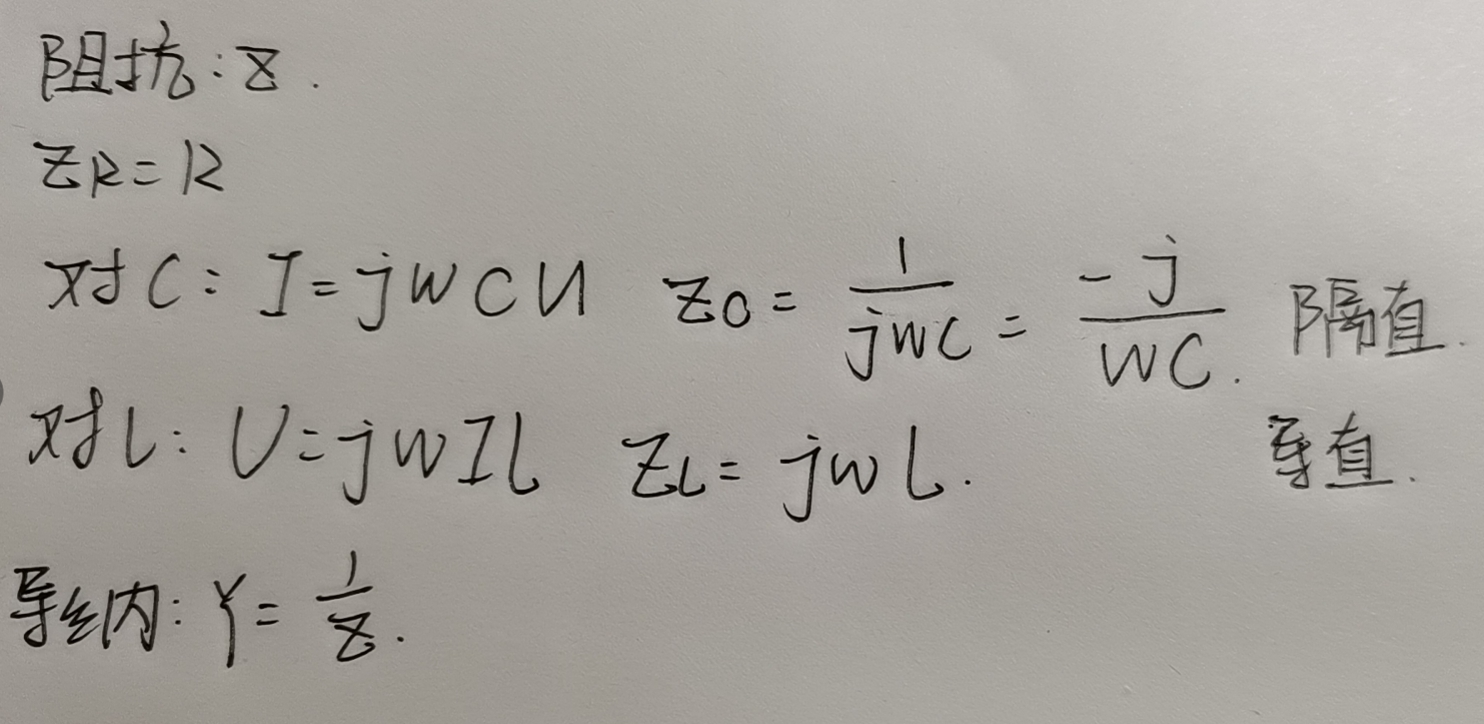 阻抗:Z.
ZR=R
对C: I=jwCU ZC= 1/jwC = -j/wC. 隔直.
对L: U=jwIL ZL=jwL. 导直.
导纳: Y= 1/Z.